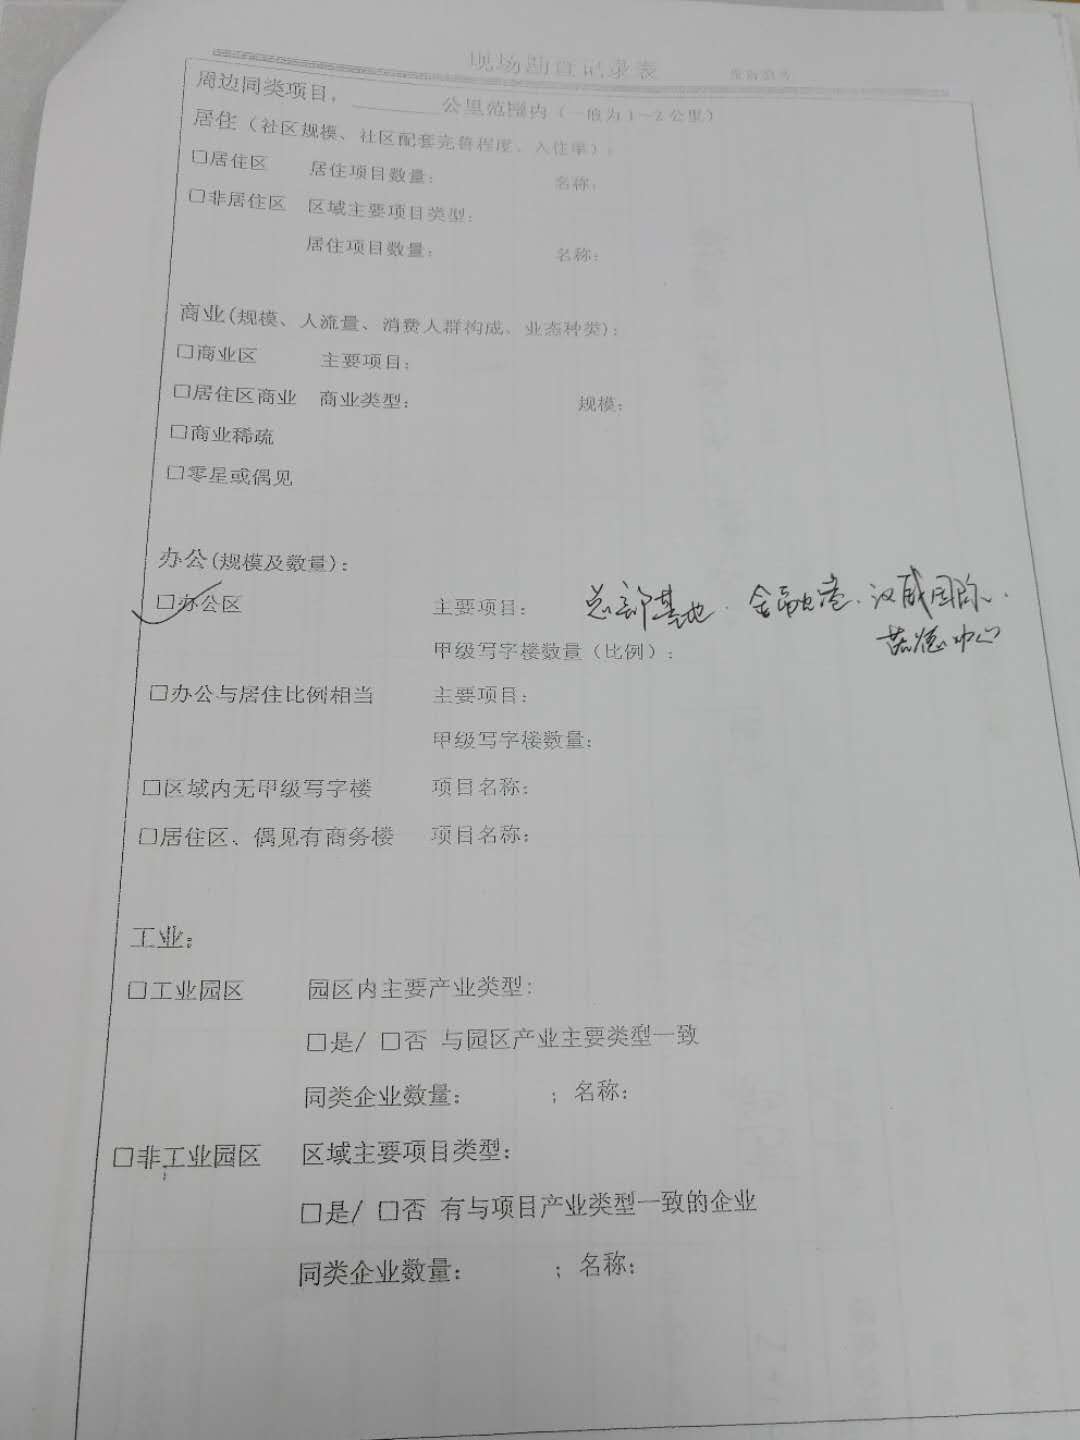 现场勘查记录表
周边同类项目，________公里范围内（一般为1~2公里）
居住（社区规模、社区配套完善程度、入住率）：
□居住区 居住项目数量： 名称：
□非居住区 区域主要项目类型：
居住项目数量： 名称：
商业(规模、人流量、消费人群构成、业态种类)：
□商业区 主要项目：
□居住区商业 商业类型： 规模：
□商业稀疏
□零星或偶见
办公(规模及数量)：
□办公区 主要项目： 总部基地、金融港、汉威国际、
甲级写字楼数量（比例）： 中心
□办公与居住比例相当 主要项目：
甲级写字楼数量：
□区域内无甲级写字楼 项目名称：
□居住区、偶见有商务楼 项目名称：
工业：
□工业园区 园区内主要产业类型：
□是/ □否 与园区产业主要类型一致
同类企业数量： ；名称：
□非工业园区 区域主要项目类型：
□是/ □否 有与项目产业类型一致的企业
同类企业数量： ；名称：